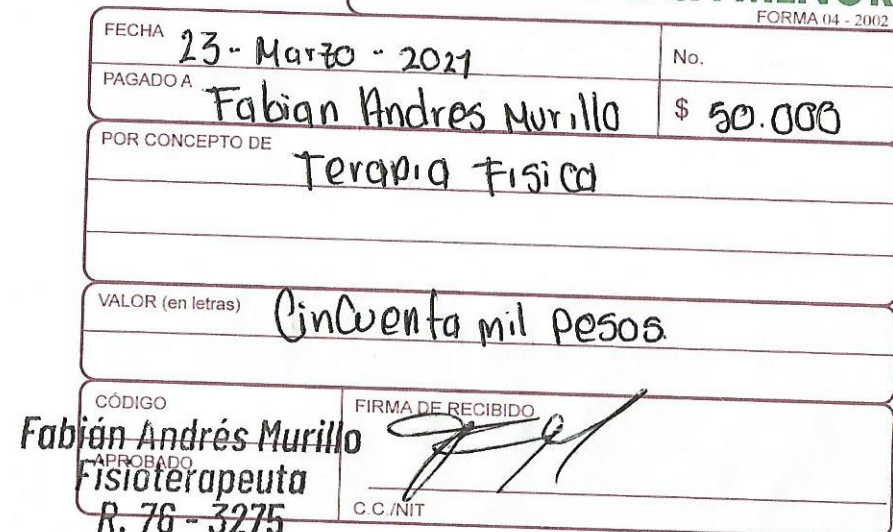 FORMA 04 - 2002
FECHA 23 - Marzo - 2021
No.
PAGADO A Fabian Andres Murillo $ 50.000
POR CONCEPTO DE Terapia Fisica
VALOR (en letras) Cincuenta mil pesos
CÓDIGO
FIRMA DE RECIBIDO
Fabián Andrés Murillo
APROBADO
Fisioterapeuta
C.C./NIT
R. 76 - 3275